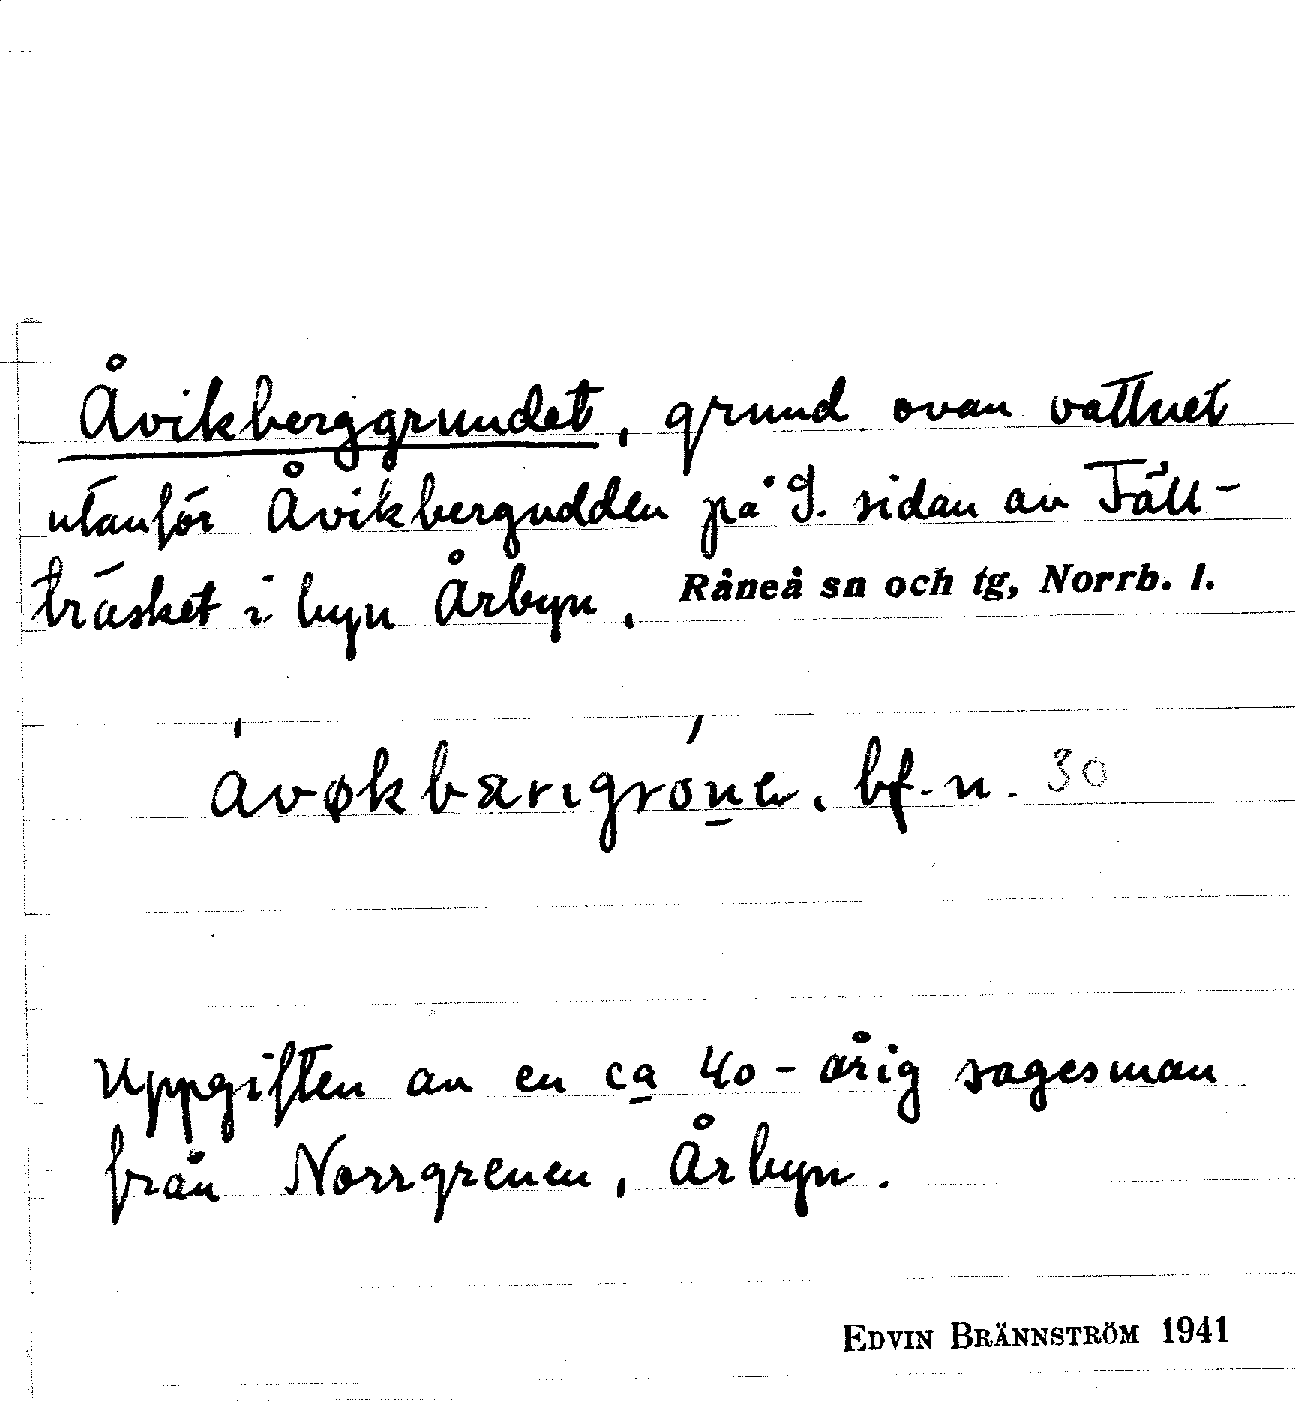 Åvikberggrundet, grund ovan vattnet
utanför Åvikbergudden på S. sidan av Fält-
träsket i byn Årbyn. Råneå sn och tg, Norrb. l.
bf. n. 30
Uppgiften av en ca 40-årig sagesman
från Norrgrenen, Årbyn.
EDVIN BRÄNNSTRÖM 1941